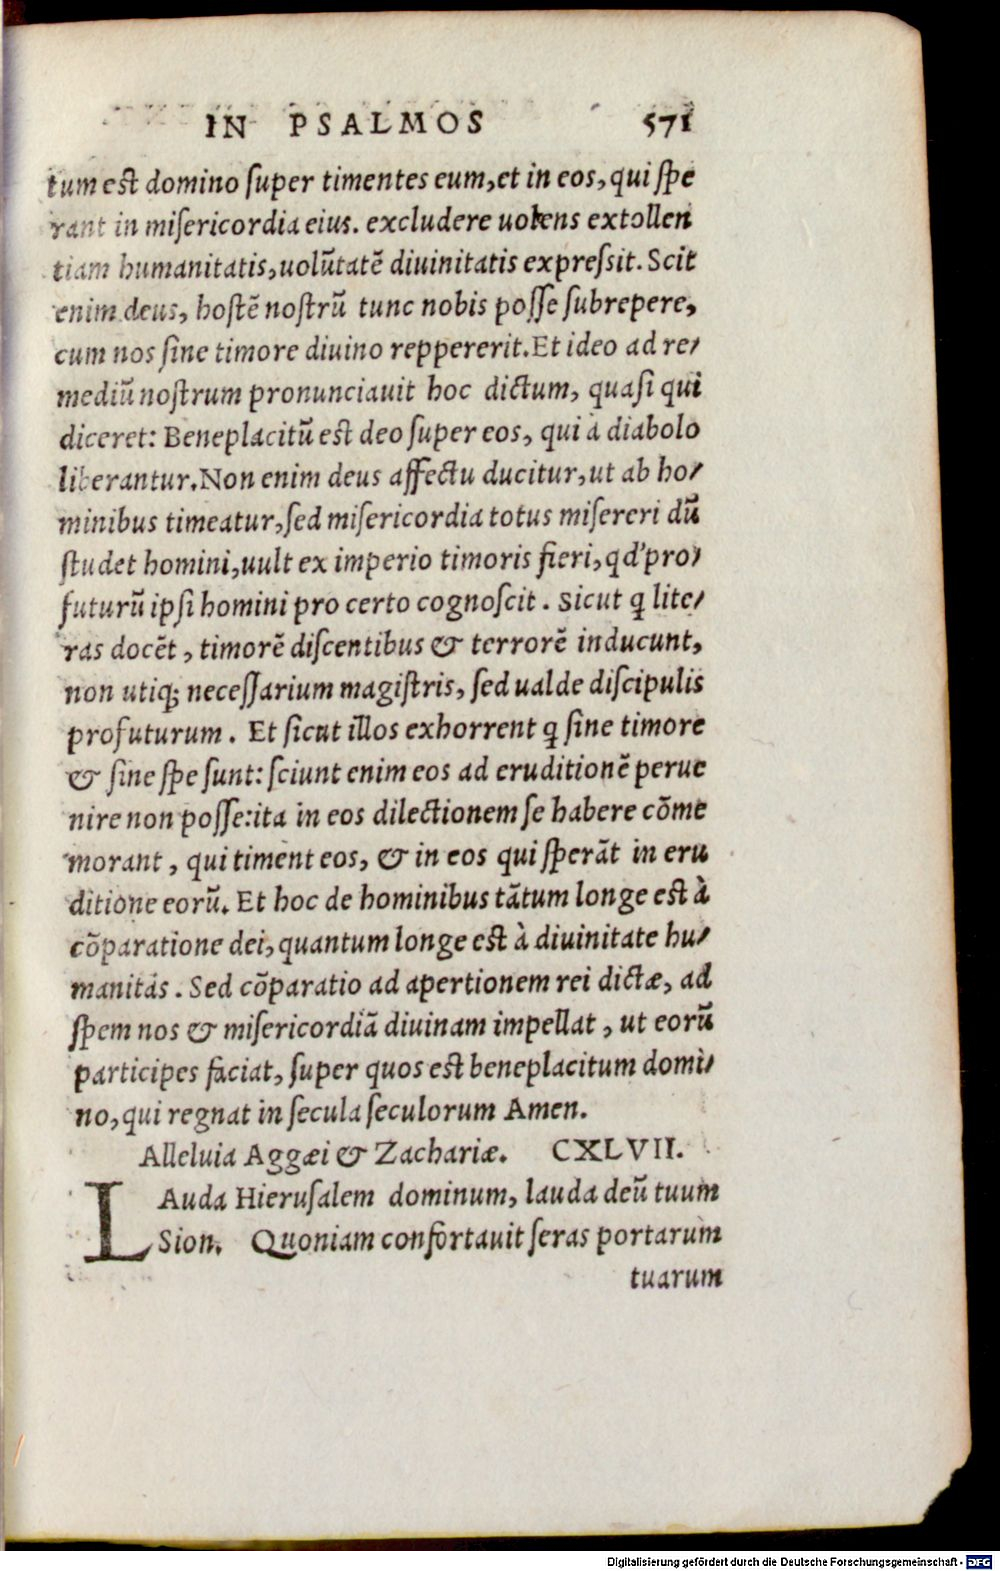 IN PSALMOS 571
tum est domino ſuper timentes eum, et in eos, qui ſpe
rant in miſericordia eius. excludere uolens extollen
tiam humanitatis, uolũtatẽ diuinitatis expreſsit. Scit
enim deus, hoſtẽ noſtrũ tunc nobis poſſe ſubrepere,
cum nos ſine timore diuino reppererit. Et ideo ad re/
mediũ noſtrum pronunciauit hoc dictum, quaſi qui
diceret: Beneplacitũ est deo ſuper eos, qui à diabolo
liberantur. Non enim deus affectu ducitur, ut ab ho/
minibus timeatur, ſed miſericordia totus miſereri dũ
ſtudet homini, uult ex imperio timoris fieri, qd' pro/
futurũ ipſi homini pro certo cognoſcit. Sicut q̃ lite/
ras docẽt, timorẽ diſcentibus & terrorẽ inducunt,
non utiq; neceſſarium magiſtris, ſed ualde diſcipulis
profuturum. Et ſicut illos exhorrent q̃ ſine timore
& ſine ſpe ſunt: ſciunt enim eos ad eruditionẽ perue
nire non poſſe: ita in eos dilectionem ſe habere cõme
morant, qui timent eos, & in eos qui ſperãt in eru
ditione eorũ. Et hoc de hominibus tãtum longe est à
cõparatione dei, quantum longe est à diuinitate hu/
manitas. Sed cõparatio ad apertionem rei dictæ, ad
ſpem nos & miſericordiã diuinam impellat, ut eorũ
participes faciat, ſuper quos est beneplacitum domi/
no, qui regnat in ſecula ſeculorum Amen.
Alleluia Aggæi & Zachariæ. CXLVII.
LAuda Hieruſalem dominum, lauda deũ tuum
Sion. Quoniam confortauit ſeras portarum
tuarum
Digitalisierung gefördert durch die Deutsche Forschungsgemeinschaft - DFG